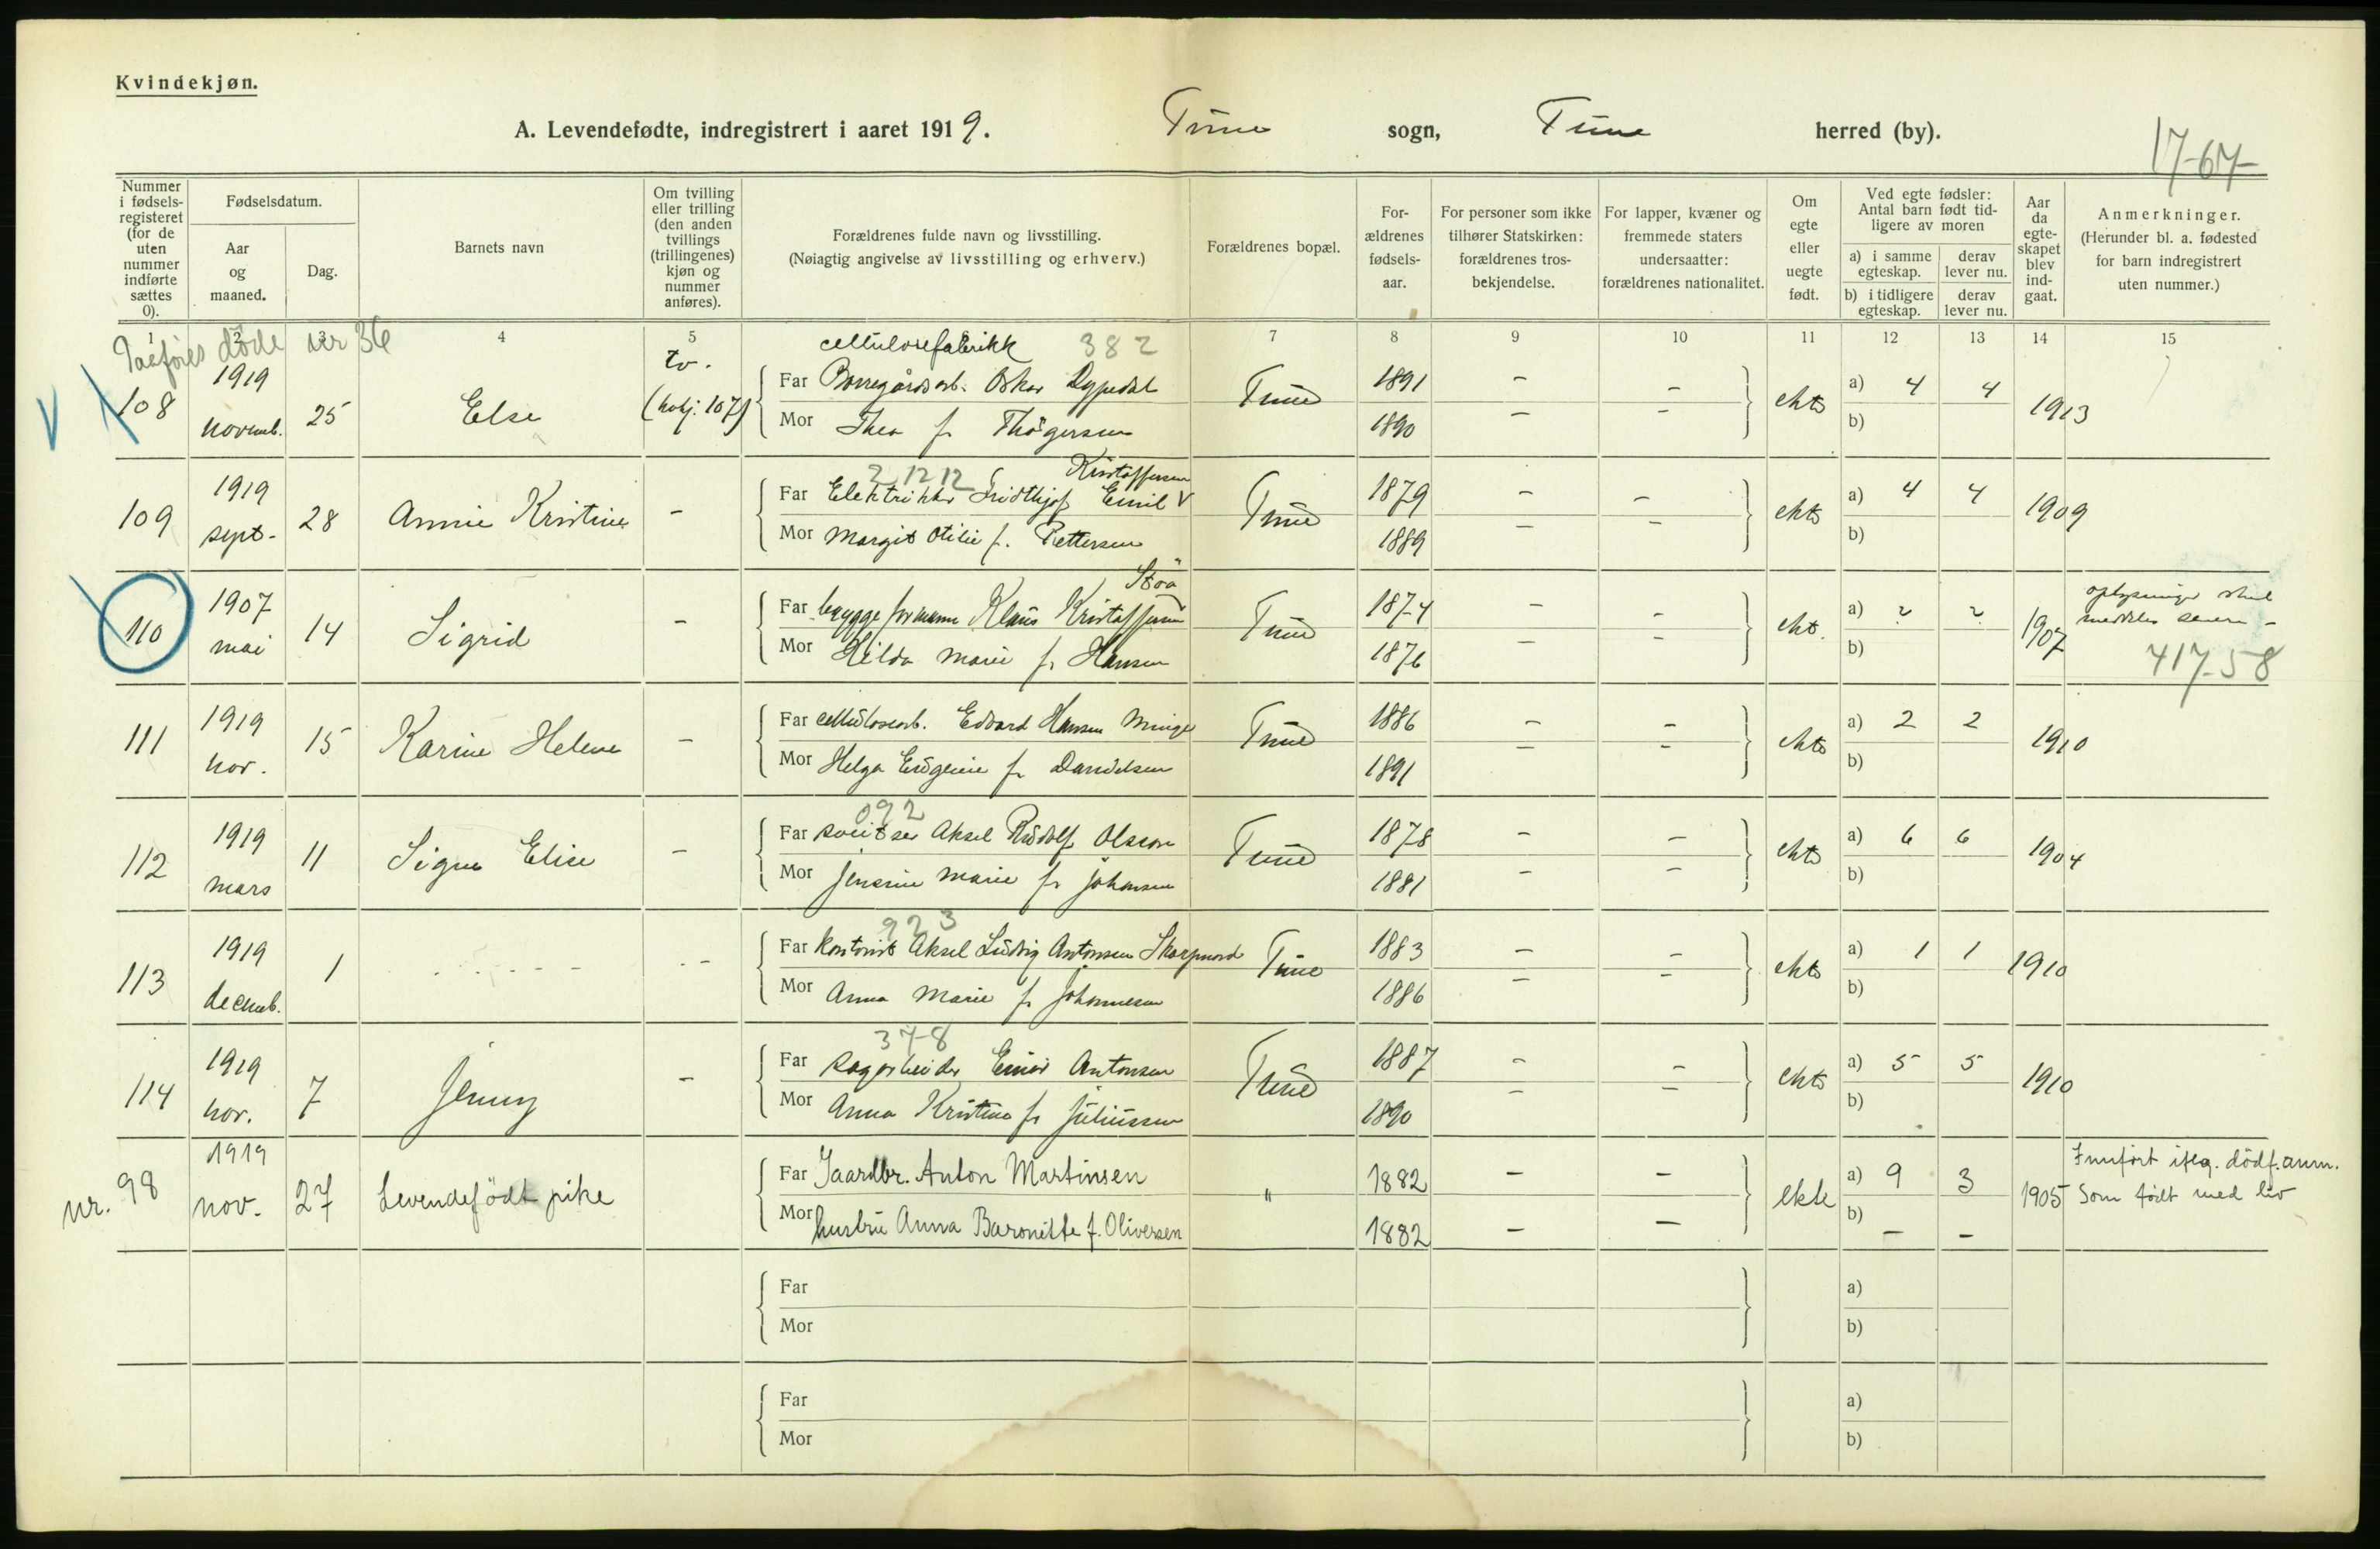 Kvindekjøn.
A. Levendefødte, indregistrert i aaret 1919. Tune sogn, Tune herred (by).
17-67-
Nummer i fødsels-registeret (for de uten nummer indførte sættes 0).
Fødselsdatum.
Aar og maaned.
Dag.
Barnets navn
Om tvilling eller trilling (den anden tvillings (trillingenes) kjøn og nummer anføres).
Forældrenes fulde navn og livsstilling.
(Nøiagtig angivelse av livsstilling og erhverv.)
Forældrenes bopæl.
For-ældrenes fødsels-aar.
For personer som ikke tilhører Statskirken: forældrenes tros-bekjendelse.
For lapper, kvæner og fremmede staters undersaatter: forældrenes nationalitet.
Om egte eller uegte født.
Ved egte fødsler: Antal barn født tid-ligere av moren
a) i samme egteskap.
derav lever nu.
b) i tidligere egteskap.
derav lever nu.
Aar da egte-skapet blev ind-gaat.
Anmerkninger.
(Herunder bl. a. fødested for barn indregistrert uten nummer.)
1 2 3 4 5 7 8 9 10 11 12 13 14 15
døde nr 36
cellulosefabrikk 382
108 1919 novemb. 25 Else tv. (hvkj. 107)
Far Borregårdsarb. Oskar Dypedal Tune 1891 - - ekte a) 4 4 1913
Mor Thea f. Thøgersen 1890 - - b)
21212 Kristoffersen
109 1919 sept. 28 Annie Kristine -
Far Elektriker Fridthjof Emil V Tune 1879 - - ekte a) 4 4 1909
Mor Margit Otilie f. Pettersen 1889 - - b)
110 1907 mai 14 Sigrid -
Far bryggeformann Klaus Kristoffersen Tune 1874 - - ekte a) 2 2 1907 oplysninger skal meddeles senere -
Mor Hilda Marie f. Hansen 1876 - - b) 417-58
111 1919 nov. 15 Karine Helene -
Far cellulosearb. Edvard Hansen Minge Tune 1886 - - ekte a) 2 2 1910
Mor Helga Eugenie f. Danielsen 1891 - - b)
092
112 1919 mars 11 Signe Elise -
Far sveitser Aksel Rudolf Olsson Tune 1878 - - ekte a) 6 6 1904
Mor Jensine Marie f. Johansen 1881 - - b)
923
113 1919 decemb. 1 - - - - -
Far kontorist Aksel Ludvig Antonsen Skarpnord Tune 1883 - - ekte a) 1 1 1910
Mor Anna Marie f. Johannesen 1886 - - b)
378
114 1919 nov. 7 Jenny -
Far sagarbeider Einar Antonsen Tune 1887 - - ekte a) 5 5 1910
Mor Anna Kristine f. Juliussen 1890 - - b)
nr. 98 1919 nov. 27 Levendefödt pike
Far Gaardbr. Anton Martinsen " 1882 - - ekte a) 9 3 1905 Innfört iflg. dödf. anm. Som födt med liv
Mor hustru Anna Baronitte f. Oliversen 1882 - - b) - -
Far a)
Mor b)
Far a)
Mor b)